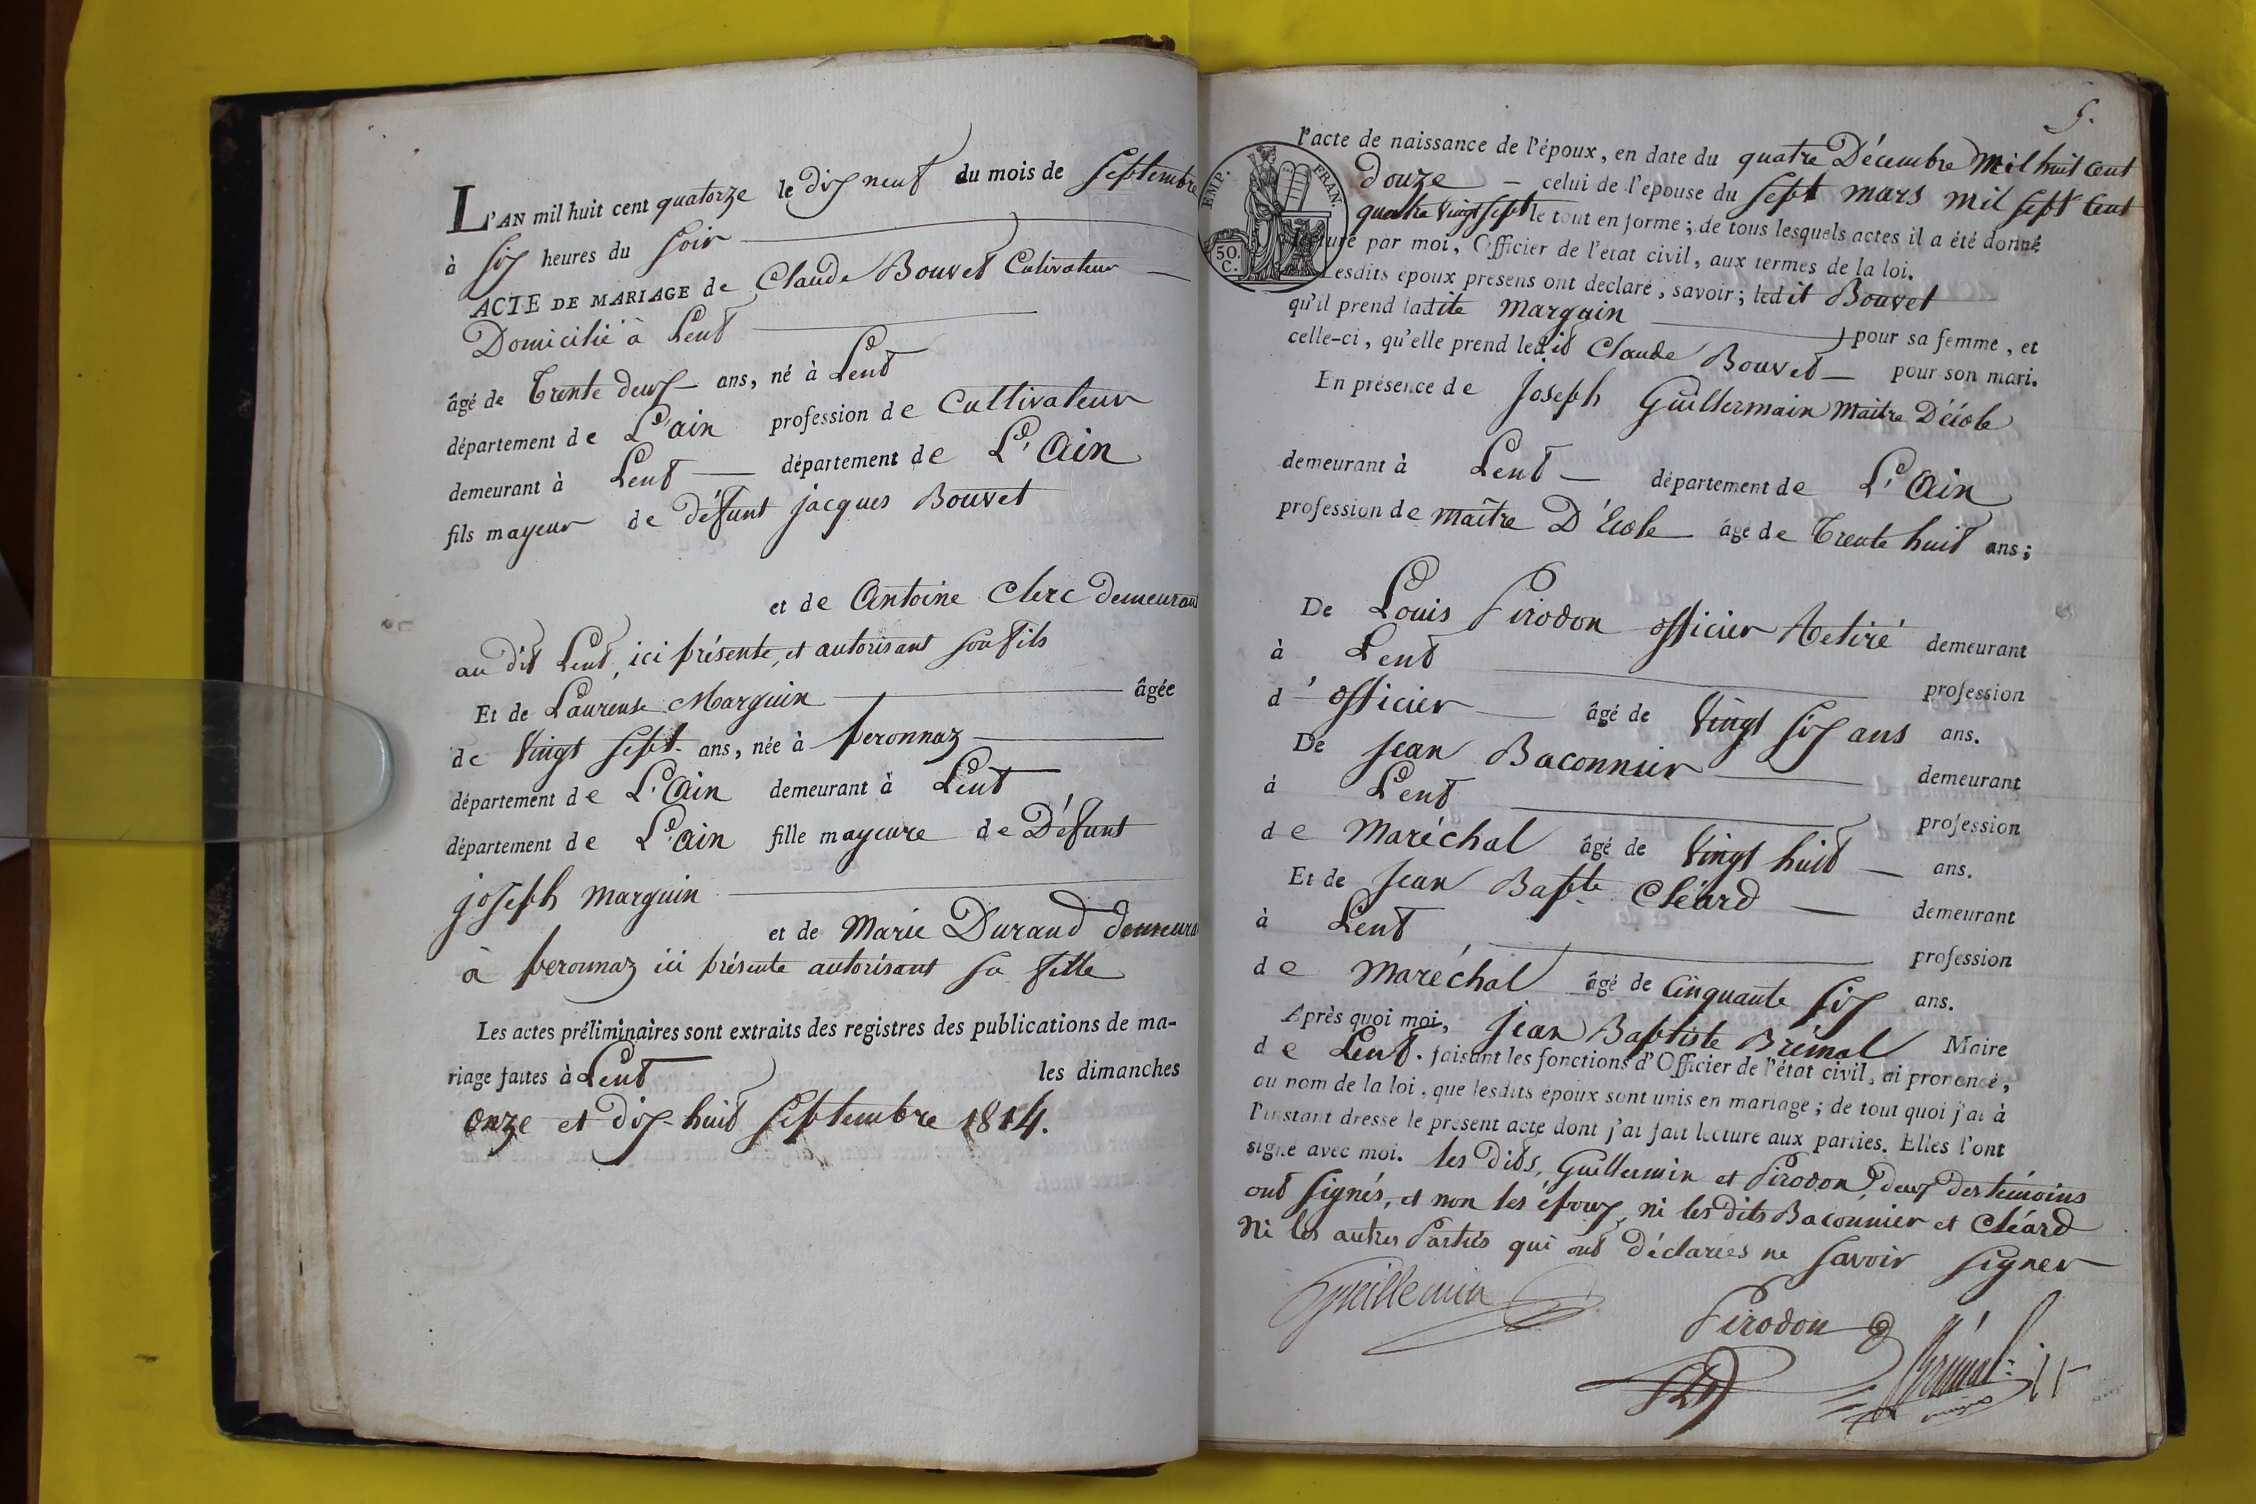 L'AN mil huit cent quatorze le dix neuf du mois de Septembre
à six heures du soir
ACTE DE MARIAGE de Claude Bouvet Cultivateur
Domicilié à Lent
âgé de trente deux ans, né à Lent
département de L'ain profession de Cultivateur
demeurant à Lent département de L'Ain
fils mayeur de défunt jacques Bouvet
et de Antoine Clerc demeurant
au dit Lent, ici présente, et autorisant son fils
Et de Laurense Marguin âgée
de vingt sept ans, née à peronnaz
département de L'Ain demeurant à Lent
département de L'ain fille mayeure de Défunt
joseph marguin
et de Marie Durand demeura
à peronnaz ici présente autorisant sa fille
Les actes préliminaires sont extraits des registres des publications de ma-
riage faites à Lent les dimanches
onze et dix-huit Septembre 1814.
5.
EMP. FRAN.
50. C.
l'acte de naissance de l'époux, en date du quatre Décembre mil huit cent
douze celui de l'épouse du sept mars mil sept cent
quatre vingt sept le tout en forme; de tous lesquels actes il a été donné
lecture par moi, Officier de l'état civil, aux termes de la loi.
Lesdits époux présens ont déclaré, savoir; ledit Bouvet
qu'il prend ladite marguin pour sa femme, et
celle-ci, qu'elle prend ledit Claude Bouvet pour son mari.
En présence de Joseph Guillermain maitre D'école
demeurant à Lent département de L'Ain
profession de maître D'Ecole âgé de trente huit ans;
De Louis Pirodon officier Retiré demeurant
à Lent profession
d'officier âgé de vingt six ans ans.
De jean Baconnier demeurant
à Lent profession
de maréchal âgé de vingt huit ans.
Et de jean Bapte Cléard demeurant
à Lent profession
de maréchal âgé de cinquante six ans.
Après quoi moi, jean Baptiste Brémal Maire
de Lent. faisant les fonctions d'Officier de l'état civil, ai prononcé,
au nom de la loi, que lesdits époux sont unis en mariage; de tout quoi j'ai à
l'instant dressé le présent acte dont j'ai fait lecture aux parties. Elles l'ont
signé avec moi. les dits, Guillermin et Pirodon, deux des témoins
ont signés, et non les époux, ni les dits Baconnier et Cléard
Ni les autres Parties qui ont déclarées ne savoir signer
Guillemin
Pirodon
Brémal